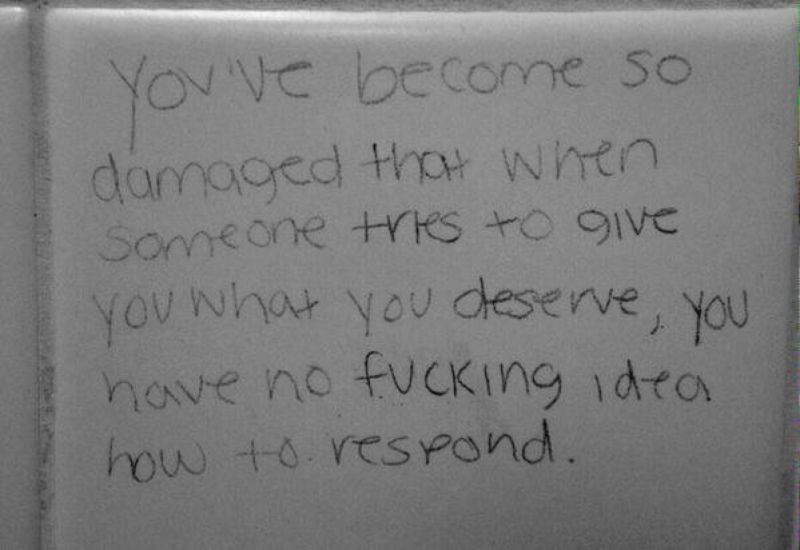 You've become so
damaged that when
someone tries to give
you what you deserve, you
have no fucking idea
how to respond.